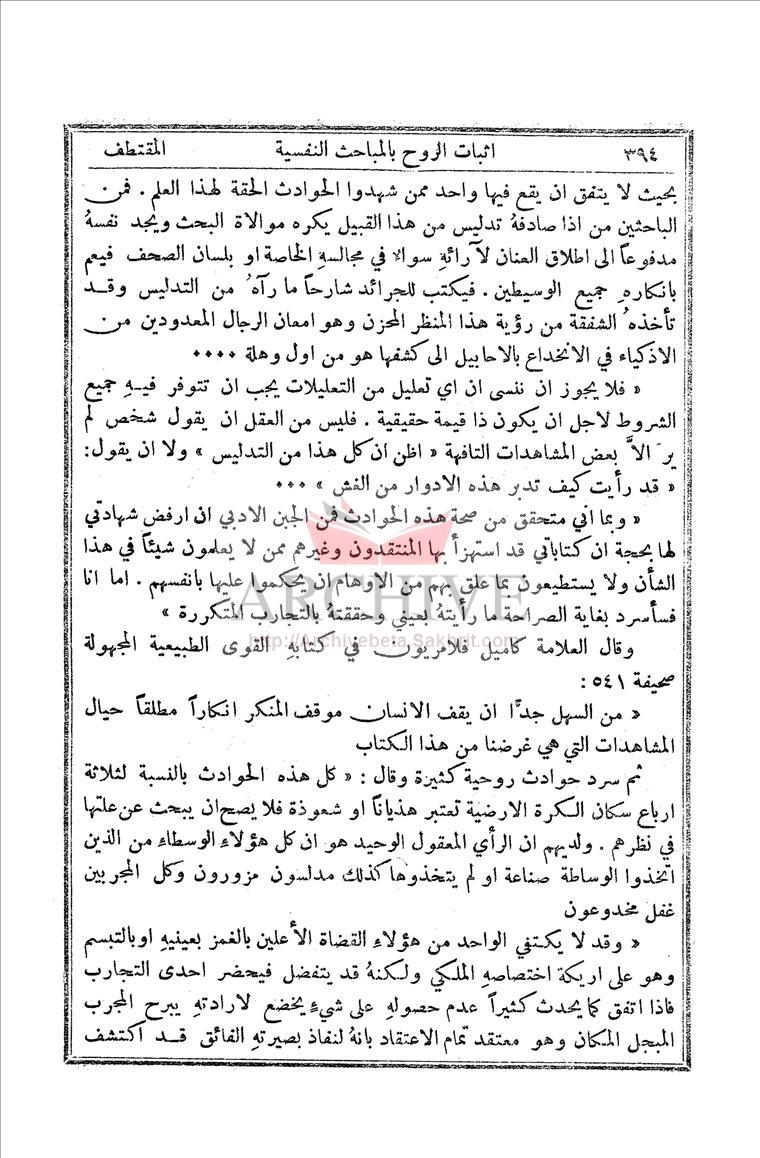 ٣٩٤ اثبات الروح بالمباحث النفسية المقتطف
بحيث لا يتفق ان يقع فيها واحد ممن شهدوا الحوادث الحقة لهذا العلم . فمن
الباحثين من اذا صادفهُ تدليس من هذا القبيل يكره موالاة البحث ويجد نفسهُ
مدفوعاً الى اطلاق العنان لآرائهِ سواءٌ في مجالسهِ الخاصة او بلسان الصحف فيعم
بانكارهِ جميع الوسيطين . فيكتب للجرائد شارحاً ما رآهُ من التدليس وقد
تأخذهُ الشفقة من رؤية هذا المنظر المحزن وهو امعان الرجال المعدودين من
الاذكياء في الانخداع بالاحابيل الى كشفها هو من اول وهلة ٠٠٠٠
« فلا يجوز ان ننسى ان اي تعليل من التعليلات يجب ان تتوفر فيهِ جميع
الشروط لاجل ان يكون ذا قيمة حقيقية . فليس من العقل ان يقول شخص لم
يرَ الاَّ بعض المشاهدات التافهة « اظن ان كل هذا من التدليس » ولا ان يقول:
« قد رأيت كيف تدبر هذه الادوار من الغش » ٠٠٠
« وبما اني متحقق من صحة هذه الحوادث فمن الجبن الادبي ان ارفض شهادتي
لها بحجة ان كتاباتي قد استهزأ بها المنتقدون وغيرهم ممن لا يعلمون شيئاً في هذا
الشأن ولا يستطيعون بما علق بهم من الاوهام ان يحكموا عليها بانفسهم . اما انا
فسأسرد بغاية الصراحة ما رأيتهُ بعيني وحققتهُ بالتجارب المتكررة »
ARCHIVE
http://Archivebeta.Sakhrit.com
وقال العلامة كاميل فلامريون في كتابهِ القوى الطبيعية المجهولة
صحيفة ٥٤١ :
« من السهل جدًّا ان يقف الانسان موقف المنكر انكاراً مطلقاً حيال
المشاهدات التي هي غرضنا من هذا الكتاب
ثم سرد حوادث روحية كثيرة وقال : « كل هذه الحوادث بالنسبة لثلاثة
ارباع سكان الكرة الارضية تعتبر هذياناً او شعوذة فلا يصح ان يبحث عن علتها
في نظرهم . ولديهم ان الرأي المعقول الوحيد هو ان كل هؤلاء الوسطاء من الذين
اتخذوا الوساطة صناعة او لم يتخذوها كذلك مدلسون مزورون وكل المجربين
غفل مخدوعون
« وقد لا يكتفي الواحد من هؤلاءِ القضاة الأعلين بالغمز بعينيهِ او بالتبسم
وهو على اريكة اختصاصهِ الملكي ولكنهُ قد يتفضل فيحضر احدى التجارب
فاذا اتفق كما يحدث كثيراً عدم حصولهِ على شيءٍ يخضع لارادتهِ يبرح المجرب
المبجل المكان وهو معتقد تمام الاعتقاد بانهُ لنفاذ بصيرتهِ الفائق قد اكتشف